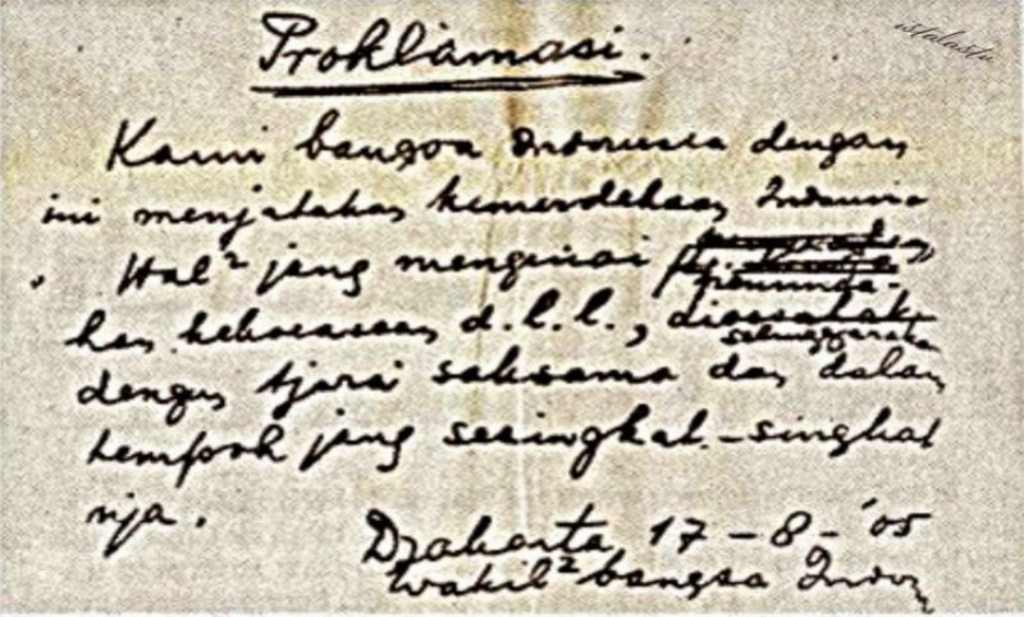 Proklamasi.
istalastu
Kami bangsa Indonesia dengan
ini menjatakan kemerdekaan Indonesia
Hal² jang mengenai peminda-
han kekoeasaan d.l.l., diselenggarakan
dengan tjara saksama dan dalam
tempoh jang sesingkat-singkat
nja.
Djakarta 17-8-'05
Wakil² bangsa Indon